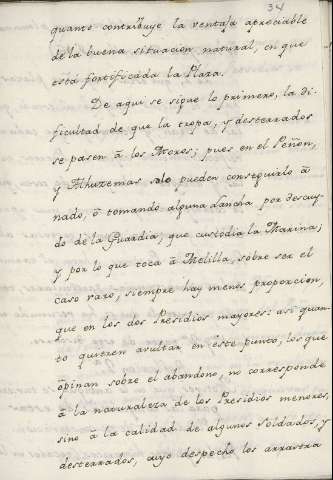 34
quanto contribuye la ventaja apreciable
de la buena situacion natural, en que
está fortificada la Plaza.
De aqui se sigue lo primero, la di-
ficultad de que la tropa, y desterrados
se pasen â los Moros; pues en el Peñon,
y Alhuzemas solo pueden conseguirlo â
nado, ô tomando alguna lancha, por descuy-
do de la Guardia, que custodia la Marina;
y por lo que toca â Melilla, sobre ser el
caso raro, siempre hay menos proporcion,
que en los dos Presidios mayores: asi quan-
to quieren avultar en este punto, los que
ôpinan sobre el abandono, no corresponde
â la naturaleza de los Presidios menores,
sino â la calidad de algunos soldados, y
desterrados, cuyo despecho los arrastra